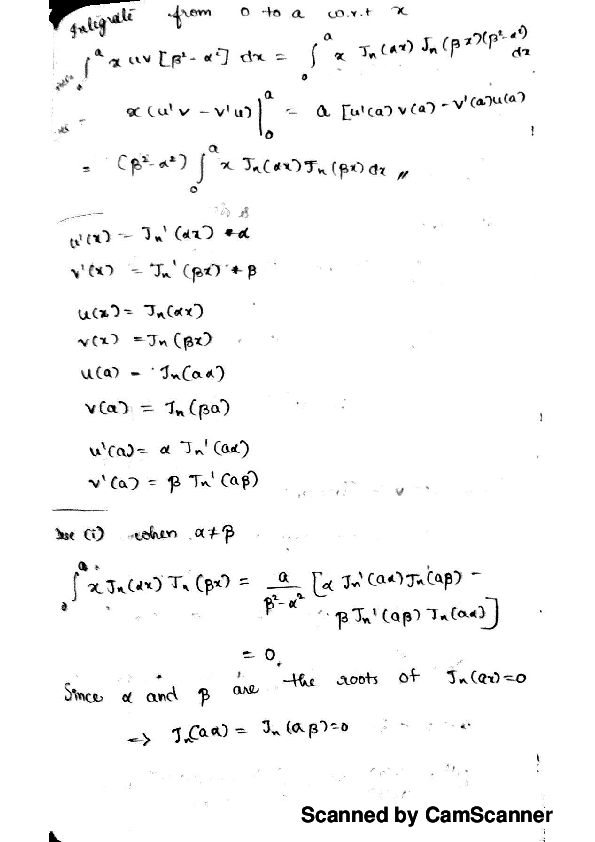 Integrate from 0 to a w.r.t x
∫₀ᵃ x uv [β² - α²] dx = ∫₀ᵃ x Jn(αx) Jn(βx)(β²-α²) dx
x(u'v - v'u)|₀ᵃ = a [u'(a) v(a) - v'(a)u(a)
= (β²-α²) ∫₀ᵃ x Jn(αx) Jn(βx) dx //
u'(x) = Jn'(αx) * α
v'(x) = Jn'(βx) * β
u(x) = Jn(αx)
v(x) = Jn(βx)
u(a) = Jn(aα)
v(a) = Jn(βa)
u'(a) = α Jn'(aα)
v'(a) = β Jn'(aβ)
(i) when α ≠ β
∫₀ᵃ x Jn(αx) Jn(βx) = a/(β²-α²) [α Jn'(aα) Jn(aβ) -
β Jn'(aβ) Jn(aα)]
= 0.
Since α and β are the roots of Jn(ax)=0
=> Jn(aα) = Jn(aβ)=0
Scanned by CamScanner